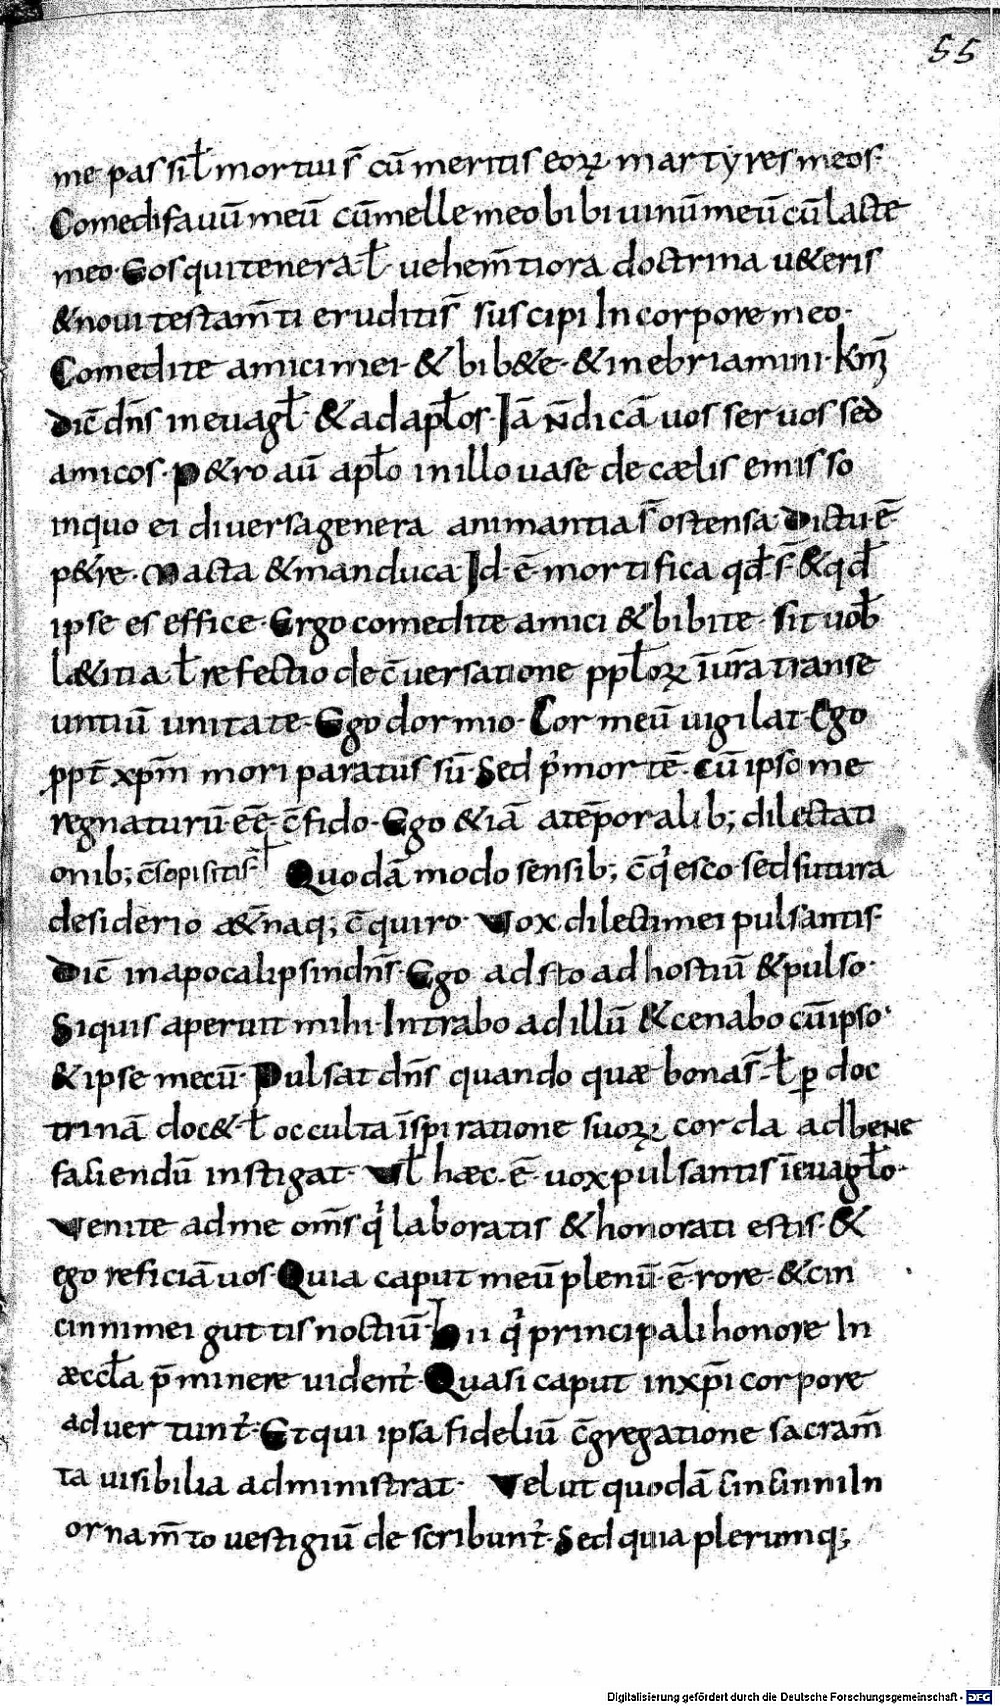 55
me pas sił mortuis̄ cū meritis eoꝝ martyres meos·
Comedi fauū meū cū melle meo bibi uinū meū cū lacte
meo· Eos qui tenera ł uehem̄tiora doctrina u&eris
& noui testam̄ti eruditis̄ suscipi In corpore meo·
Comedite amici mei· & bib&e· & inebriamini·
Dic̄ dn̄s in euagł· & ad apłos· Iā n̄ dicā uos seruos sed
amicos· P&ro aū apło in illo uase de cælis emisso
in quo ei diuersa genera animantia s̄ ostensa Dictū ē·
p&re· Macta & manduca Id· ē mortifica qđ s̄ & qđ
ipse es effice· Ergo comedite amici & bibite· sit uob̄
l&itia ł refectio de c̄uersatione ppłoꝝ ī ur̄a transe
untiū unitate· Ego dormio· Cor meū uigilat Ego
ppt̄ xpm̄ mori paratus sū· Sed p̓ mortē· cū ipso me
regnaturū· eē· c̄fido· Ego &iā a tēporalib; dilectati
onib; c̄sopitis̄ Quodā modo sensib; c̄q̓esco· sed futura
desiderio a&n̄aq; c̄quiro· Vox dilecti mei pulsantis·
Dic̄ in apocalipsin dn̄s· Ego adsto ad hostiū & pulso·
Siquis aperuit mihi· Intrabo ad illū & cenabo cū ipso·
& ipse mecū· Pulsat dn̄s quando quæ bona s̄· ł ꝑ doc
trinā doc& ł occulta īspiratione suoꝝ corda ad bene
faciendū instigat· Vł hæc· ē· uox pulsantis ī euagło·
Venite ad me om̄s q̓ laboratis & honorati estis· &
ego reficiā uos· Quia caput meū plenū· ē· rore· & cin
cinni mei guttis noctiū· hii q̓ principali honore In
æccła p̄minere uident̓· Quasi caput in xpī corpore
aduertunt̓· Et qui ipsa fideliū c̄gregatione sacram̄
ta uisibilia administrat· Velut quodā cincinni In
ornam̄to uestigiū describunt̓· Sed quia plerumq;
Digitalisierung gefördert durch die Deutsche Forschungsgemeinschaft - DFG